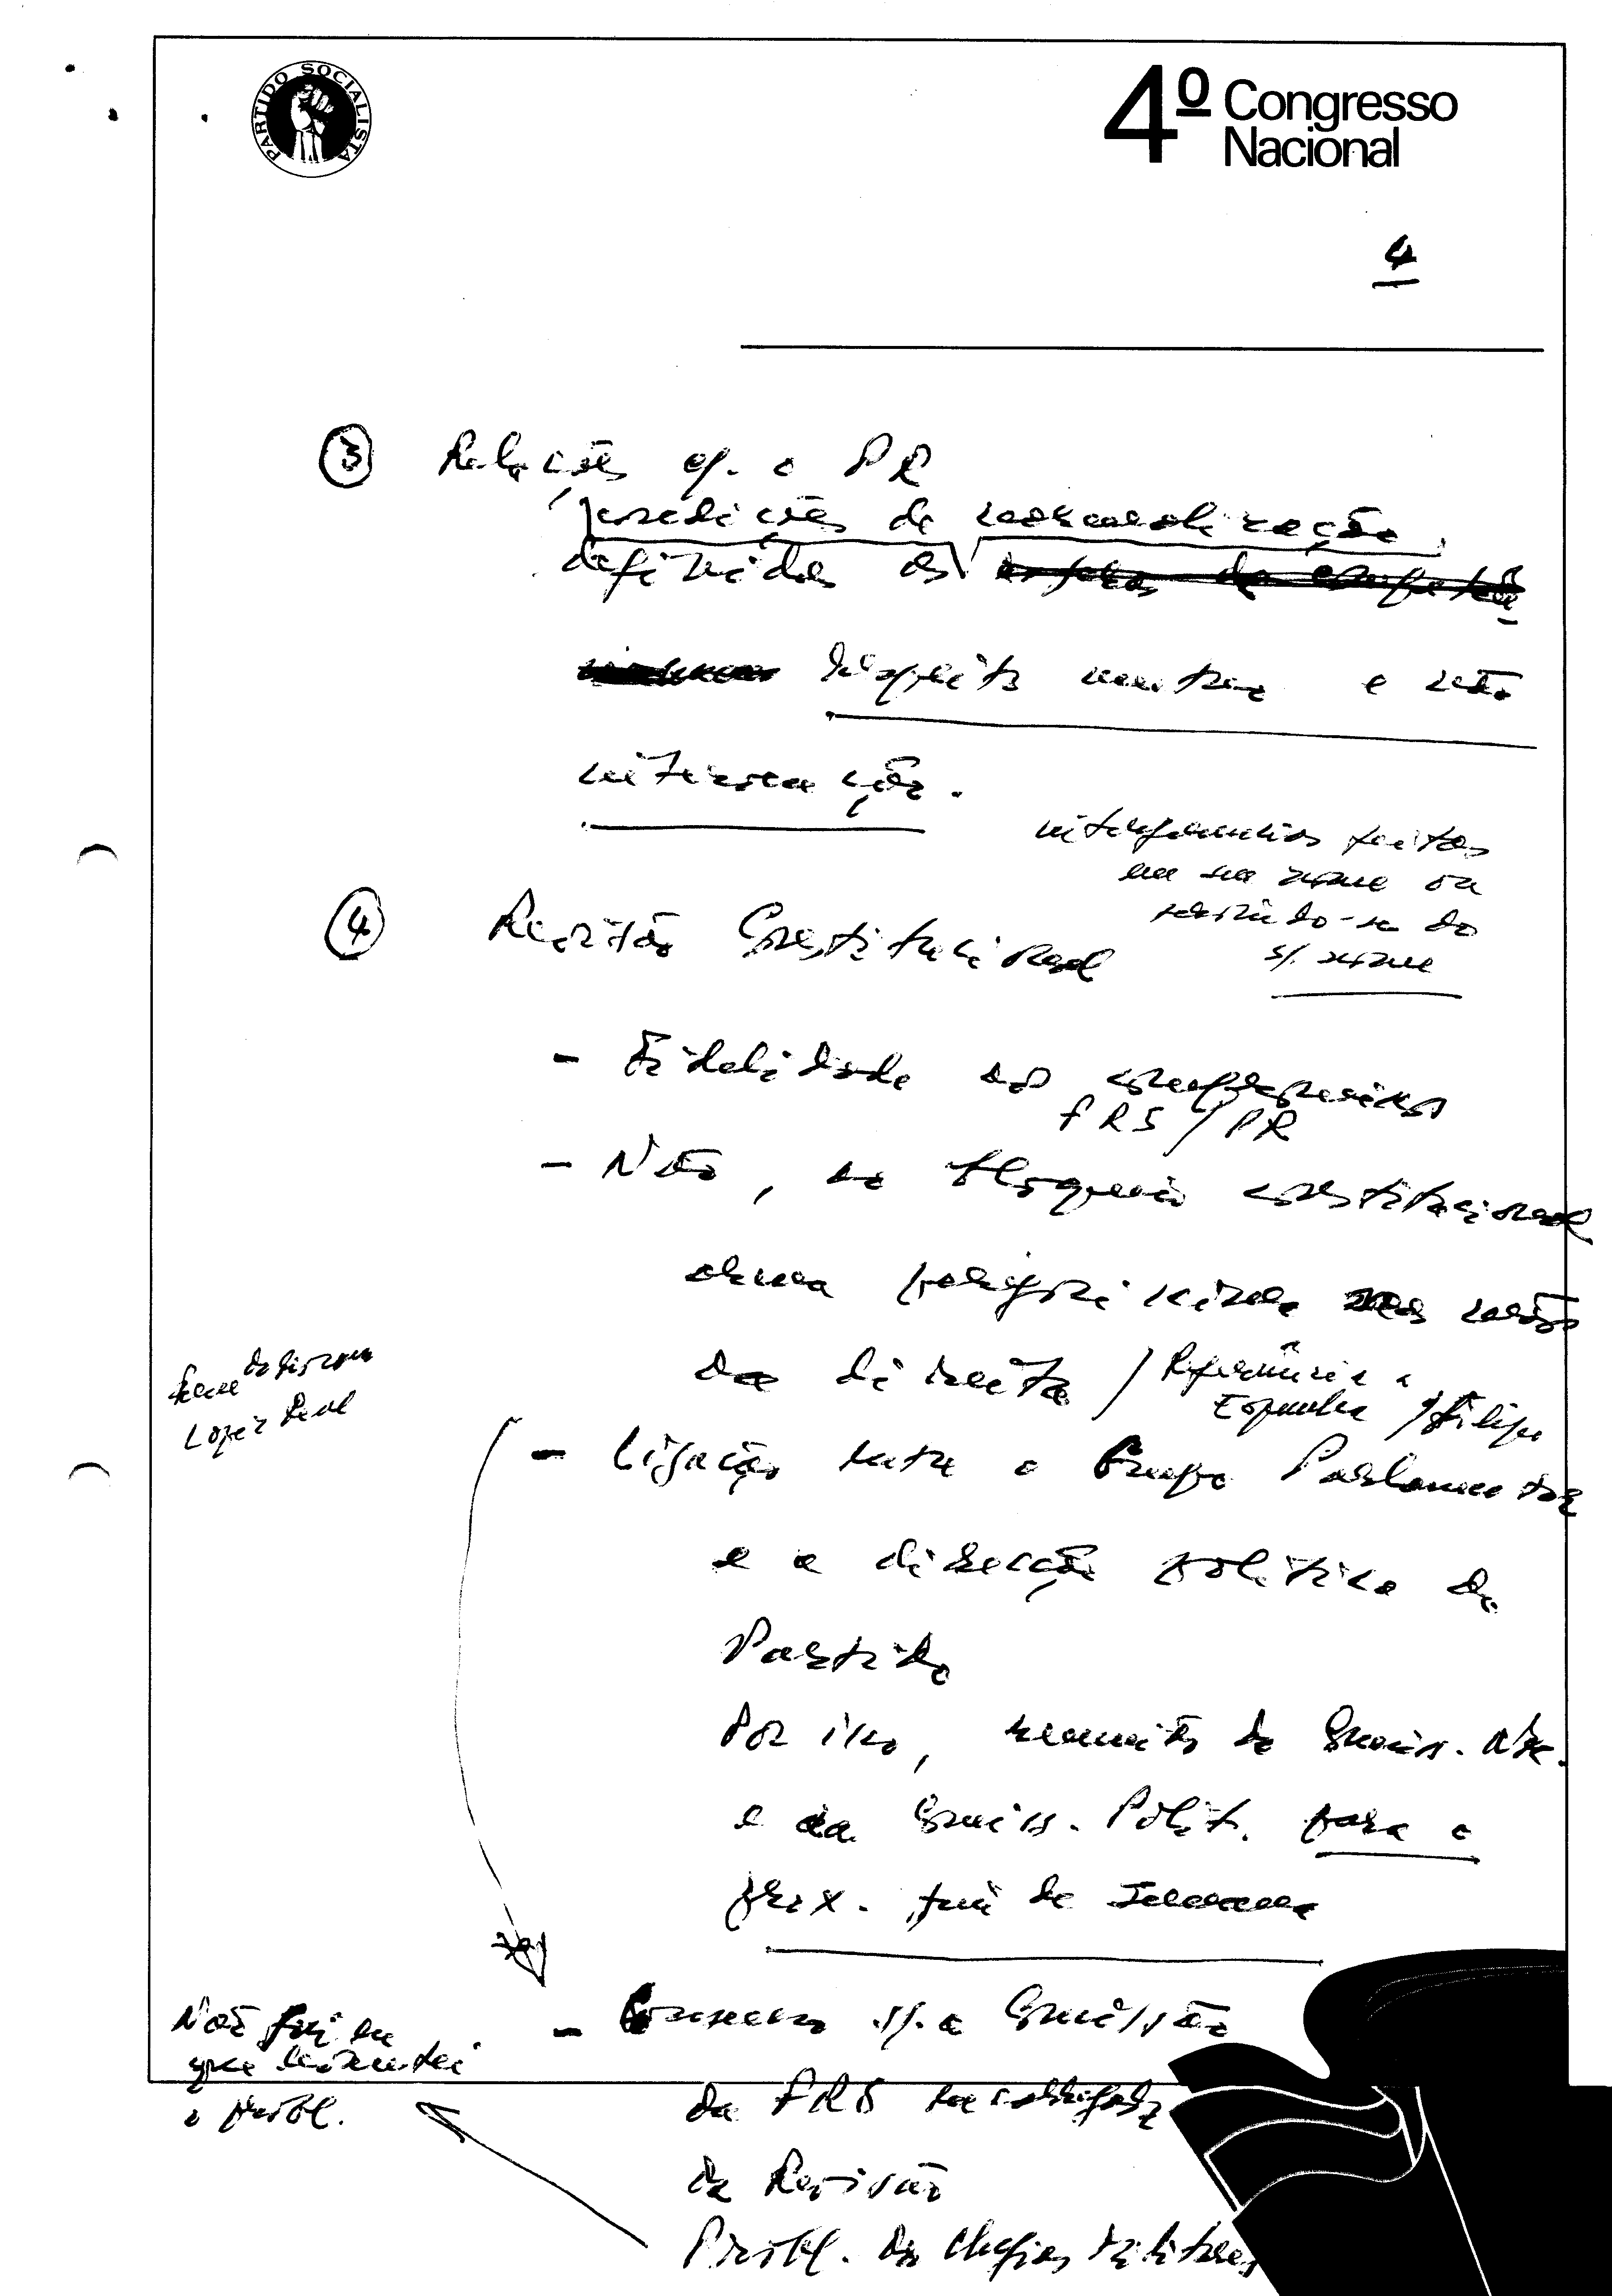 PARTIDO SOCIALISTA
4º Congresso
Nacional
4
③ Relações c/. o PR
condições de normalização,
definidas as
respeito mutuo e não
intervenção.
interferências feitas
em seu nome ou
servindo-se do
s/. nome
④ Revisão Constitucional
- Fidelidade ao compromisso
FRS / PR
- Não, ao bloqueio constitucional
arma nas mãos
da direita / Referência a
Espanha / Filipe
- Ligação entre o Grupo Parlamentar
e a direcção politica do
Partido
Por isso, reunião da Comiss. Nac.
e da Comiss. Polit. para o
prox. fim de semana
do discurso
Lopes
- Consenso s/. a Comissão
da FRS encarregada
da Revisão
Probl. das Chefias Militares
Não fui eu
que levantei
o probl.